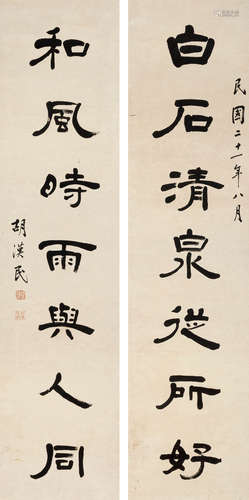 白石清泉從所好
民國二十一年八月
和風時雨與人同
胡漢民